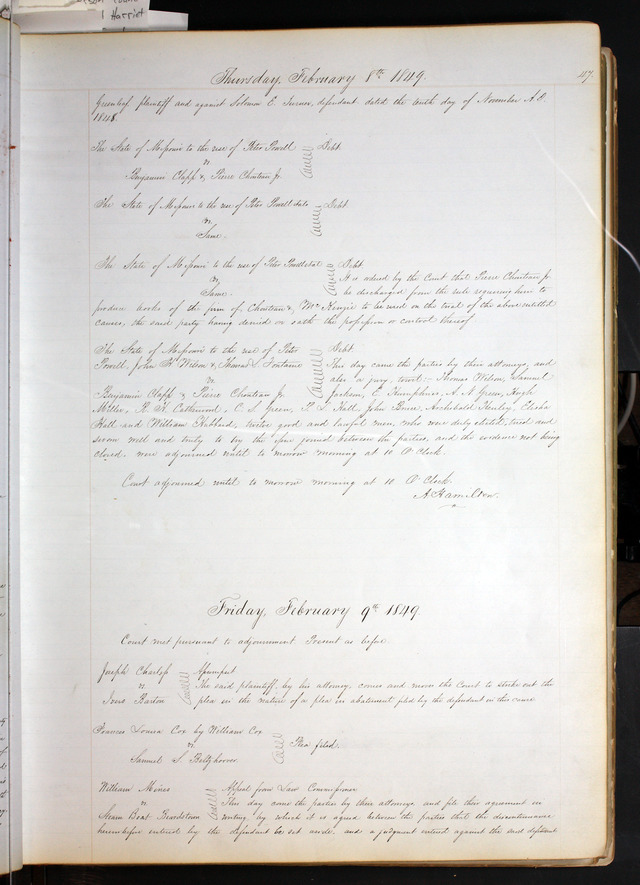 Harriet
Thursday, February 8th 1849.
47.
Greenleaf plaintiff and against Solomon E. Turner, defendant dated the tenth day of November A.D.
1848.
The State of Missouri to the use of Peter Powell
Debt.
vs.
Benjamin Clapp & Pierre Chouteau Jr.
The State of Missouri to the use of Peter Powell
Debt
vs.
Same.
The State of Missouri to the use of Peter Powell et al
Debt.
vs
It is ordered by the Court that Pierre Chouteau Jr.
Same.
be discharged from the rule requiring him to
produce books of the firm of Chouteau & McKenzie to be used on the trial of the above entitled
causes, the said party having denied on oath the possession or control thereof.
The State of Missouri to the use of Peter
Debt.
Powell, John Wilson & Thomas L. Fontaine
This day came the parties by their attorneys, and
vs.
also a jury, towit: Thomas Wilson, Samuel
Benjamin Clapp & Pierre Chouteau Jr.
Jackson, E. Humphries, A. N. Green, Hugh
Miller, C. S. Green, Hall, John Archibald Elisha
Hall and William Hubbard, twelve good and lawful men, who were duly elected, tried and
sworn well and truly to try the issue joined between the parties, and the evidence not being
closed, were adjourned until to morrow morning at 10 O'Clock.
Court adjourned until to morrow morning at 10 O'Clock.
A. Hamilton.
Friday, February 9th 1849
Court met pursuant to adjournment. Present as before.
Joseph Charless
Assumpsit
vs.
The said plaintiff, by his attorney, comes and moves the Court to strike out the
Barton
plea in the nature of a plea in abatement filed by the defendant in this cause
Frances Louisa Cox by William Cox
vs.
Plea filed.
Samuel S.
William
Appeal from Law Commissioner
vs.
This day come the parties by their attorneys and file their agreement in
Steam Boat Beardstown
writing by which it is agreed between the parties that the discontinuance
heretofore entered by the defendant be set aside, and a judgment entered against the said defendant